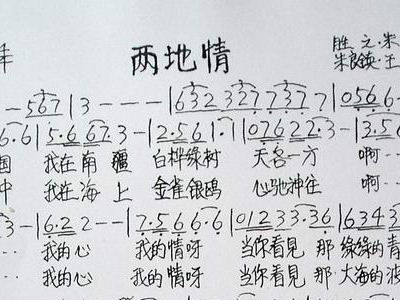 两地情
胜之·朱
朱良鍈·王
--567|3---|632 327 737 7|056 6
6·6|5·6 67 3-|2·5 6 1·1|07622·3-|3·56
我在南疆 白桦绿树 天各一方 啊--
中 我在海上 金雀银鸥 心驰神往 啊--
3-|6·22--|7·566·6|01233·36|6343
我的心 我的情呀 当你看見 那绿绿的青
我的心 我的情呀 当你看見 那大海的波